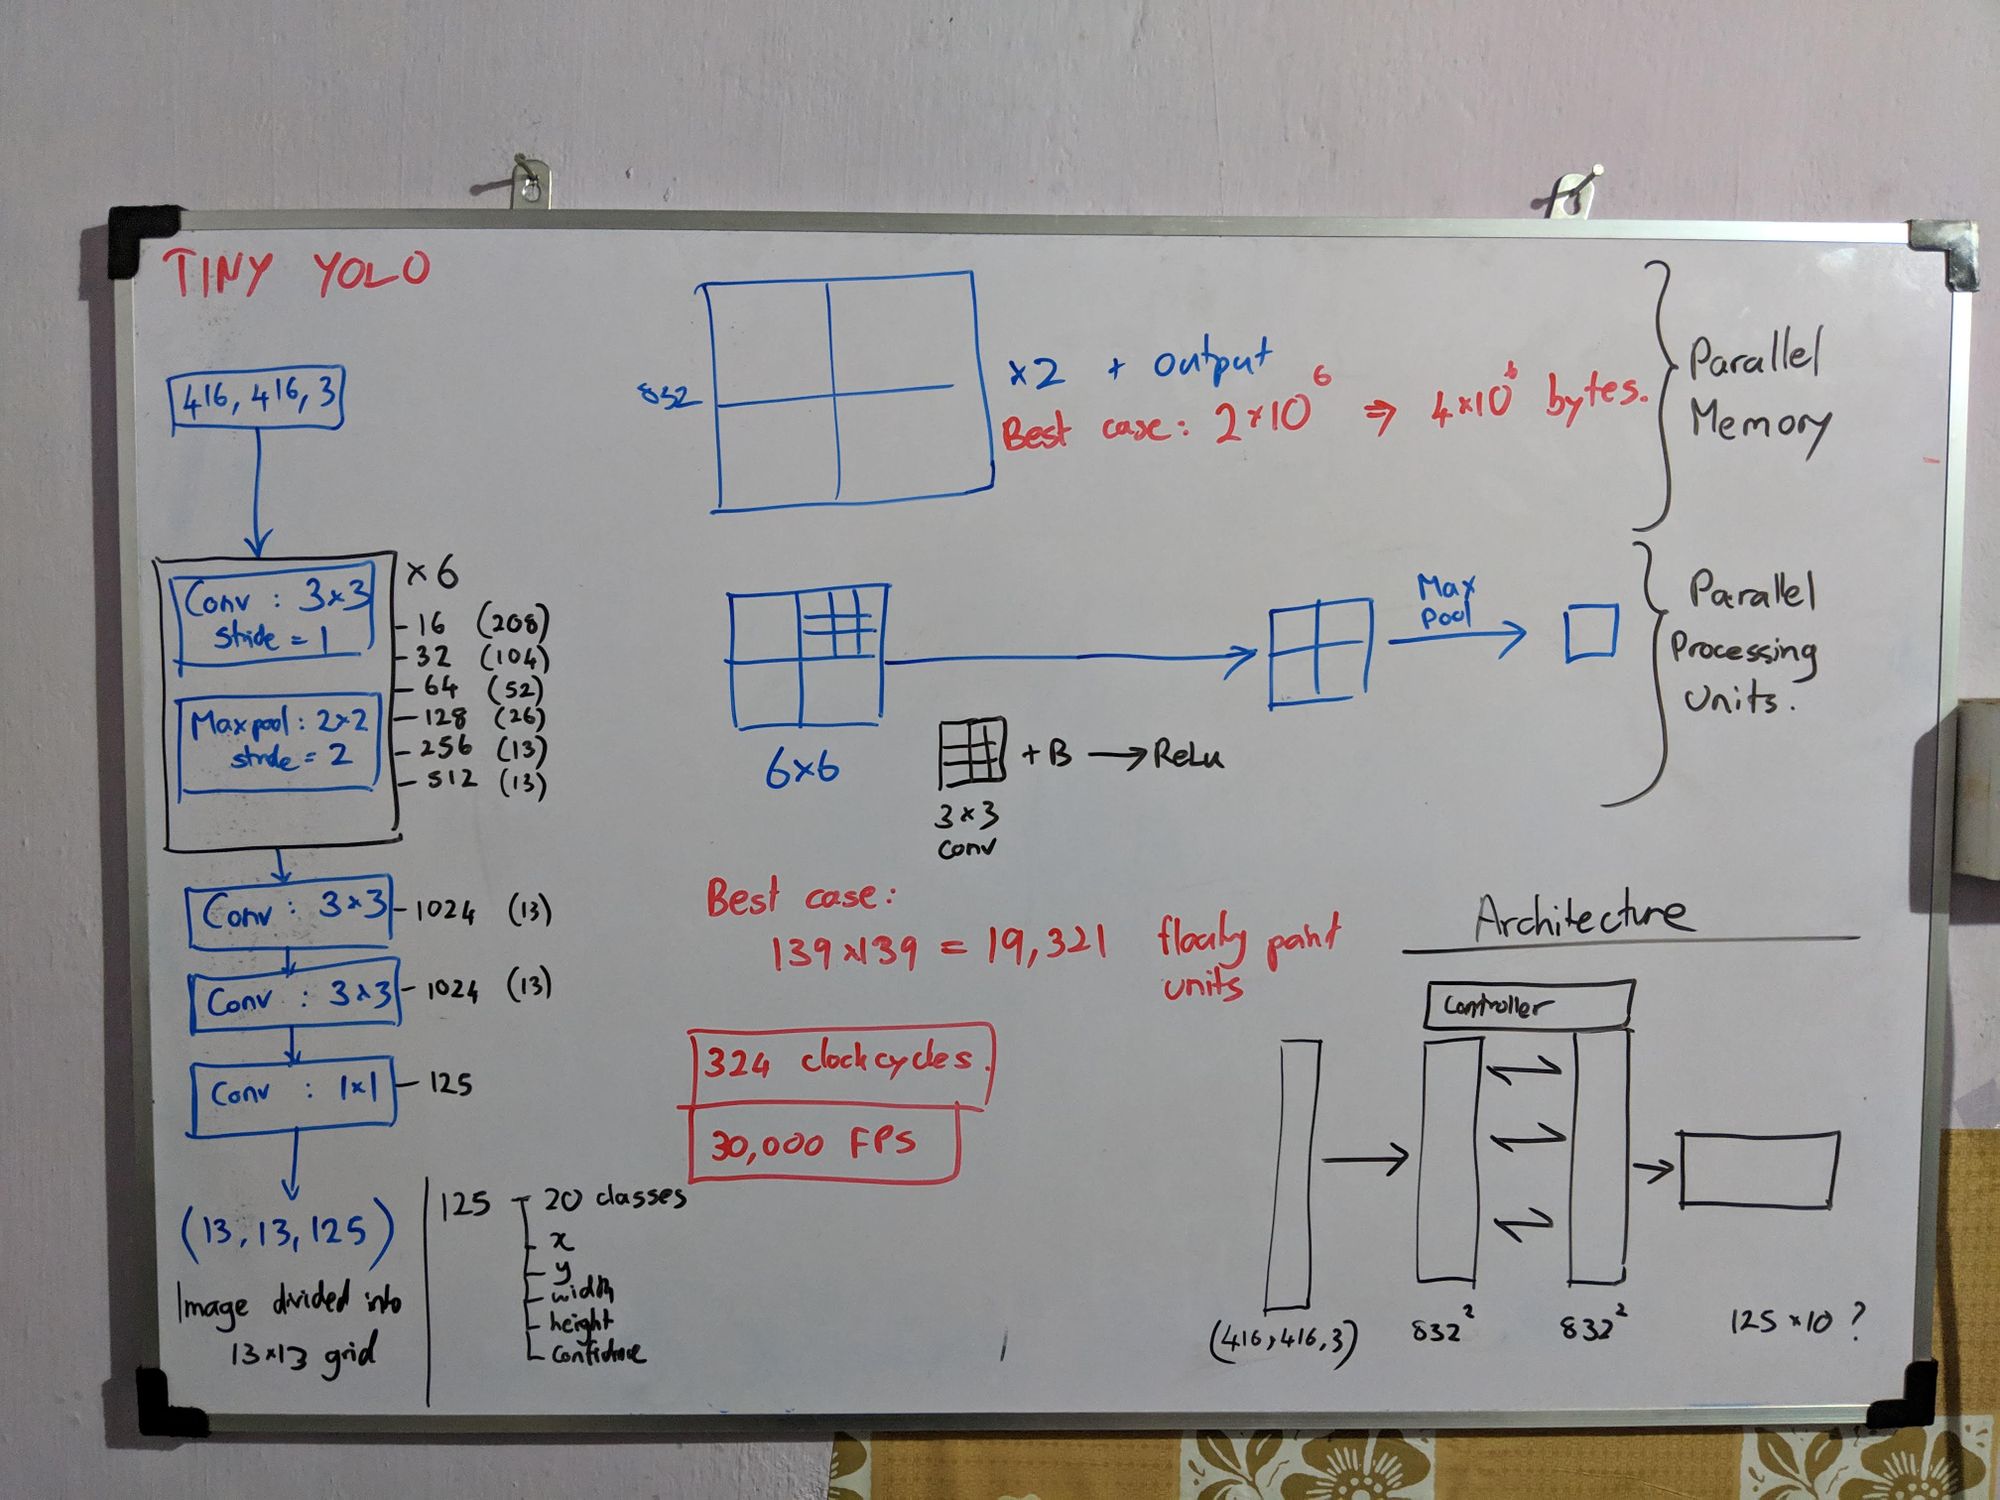 TINY YOLO
416, 416, 3
Conv : 3×3
stride = 1
Maxpool: 2×2
stride = 2
×6
16 (208)
32 (104)
64 (52)
128 (26)
256 (13)
512 (13)
Conv : 3×3
1024 (13)
Conv : 3×3
1024 (13)
Conv : 1×1
125
(13, 13, 125)
Image divided into
13×13 grid
125
20 classes
x
y
width
height
confidence
832
×2 + output
Best case: 2×10⁶ ⇒ 4×10⁶ bytes.
Parallel
Memory
6×6
3×3
Conv
+ B → ReLu
Max
pool
Parallel
Processing
Units.
Best case:
139×139 = 19,321 floating point
units
324 clockcycles.
30,000 FPS
Architecture
Controller
(416, 416, 3)
832²
832²
125×10 ?